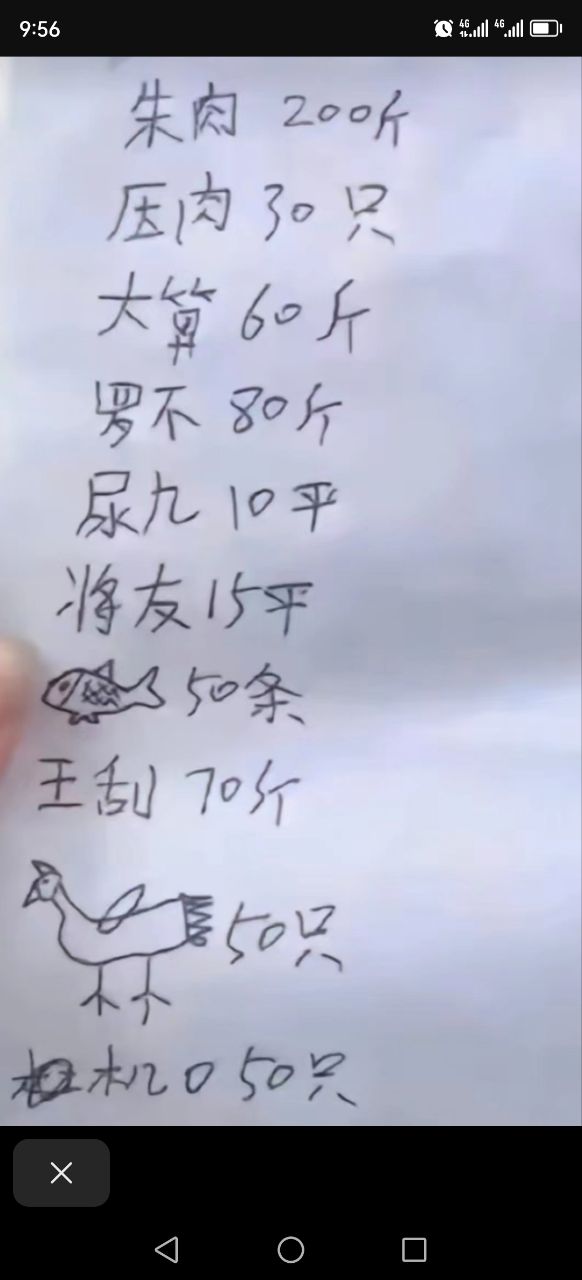 9:56
4G 4G
朱肉 200斤
压肉 30只
大算 60斤
罗不 80斤
尿九 10平
将友 15平
50条
王刮 70斤
50只
机0 50只